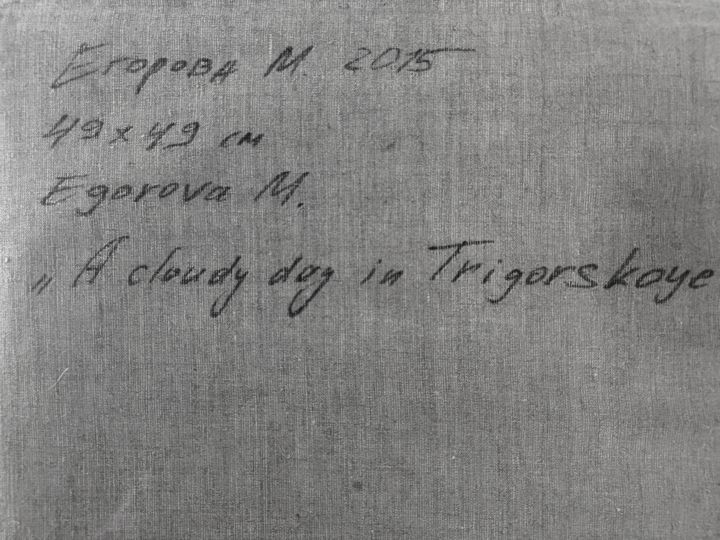 Егорова М. 2015
49 x 49 см
Egorova M.
„A cloudy day in Trigorskoye